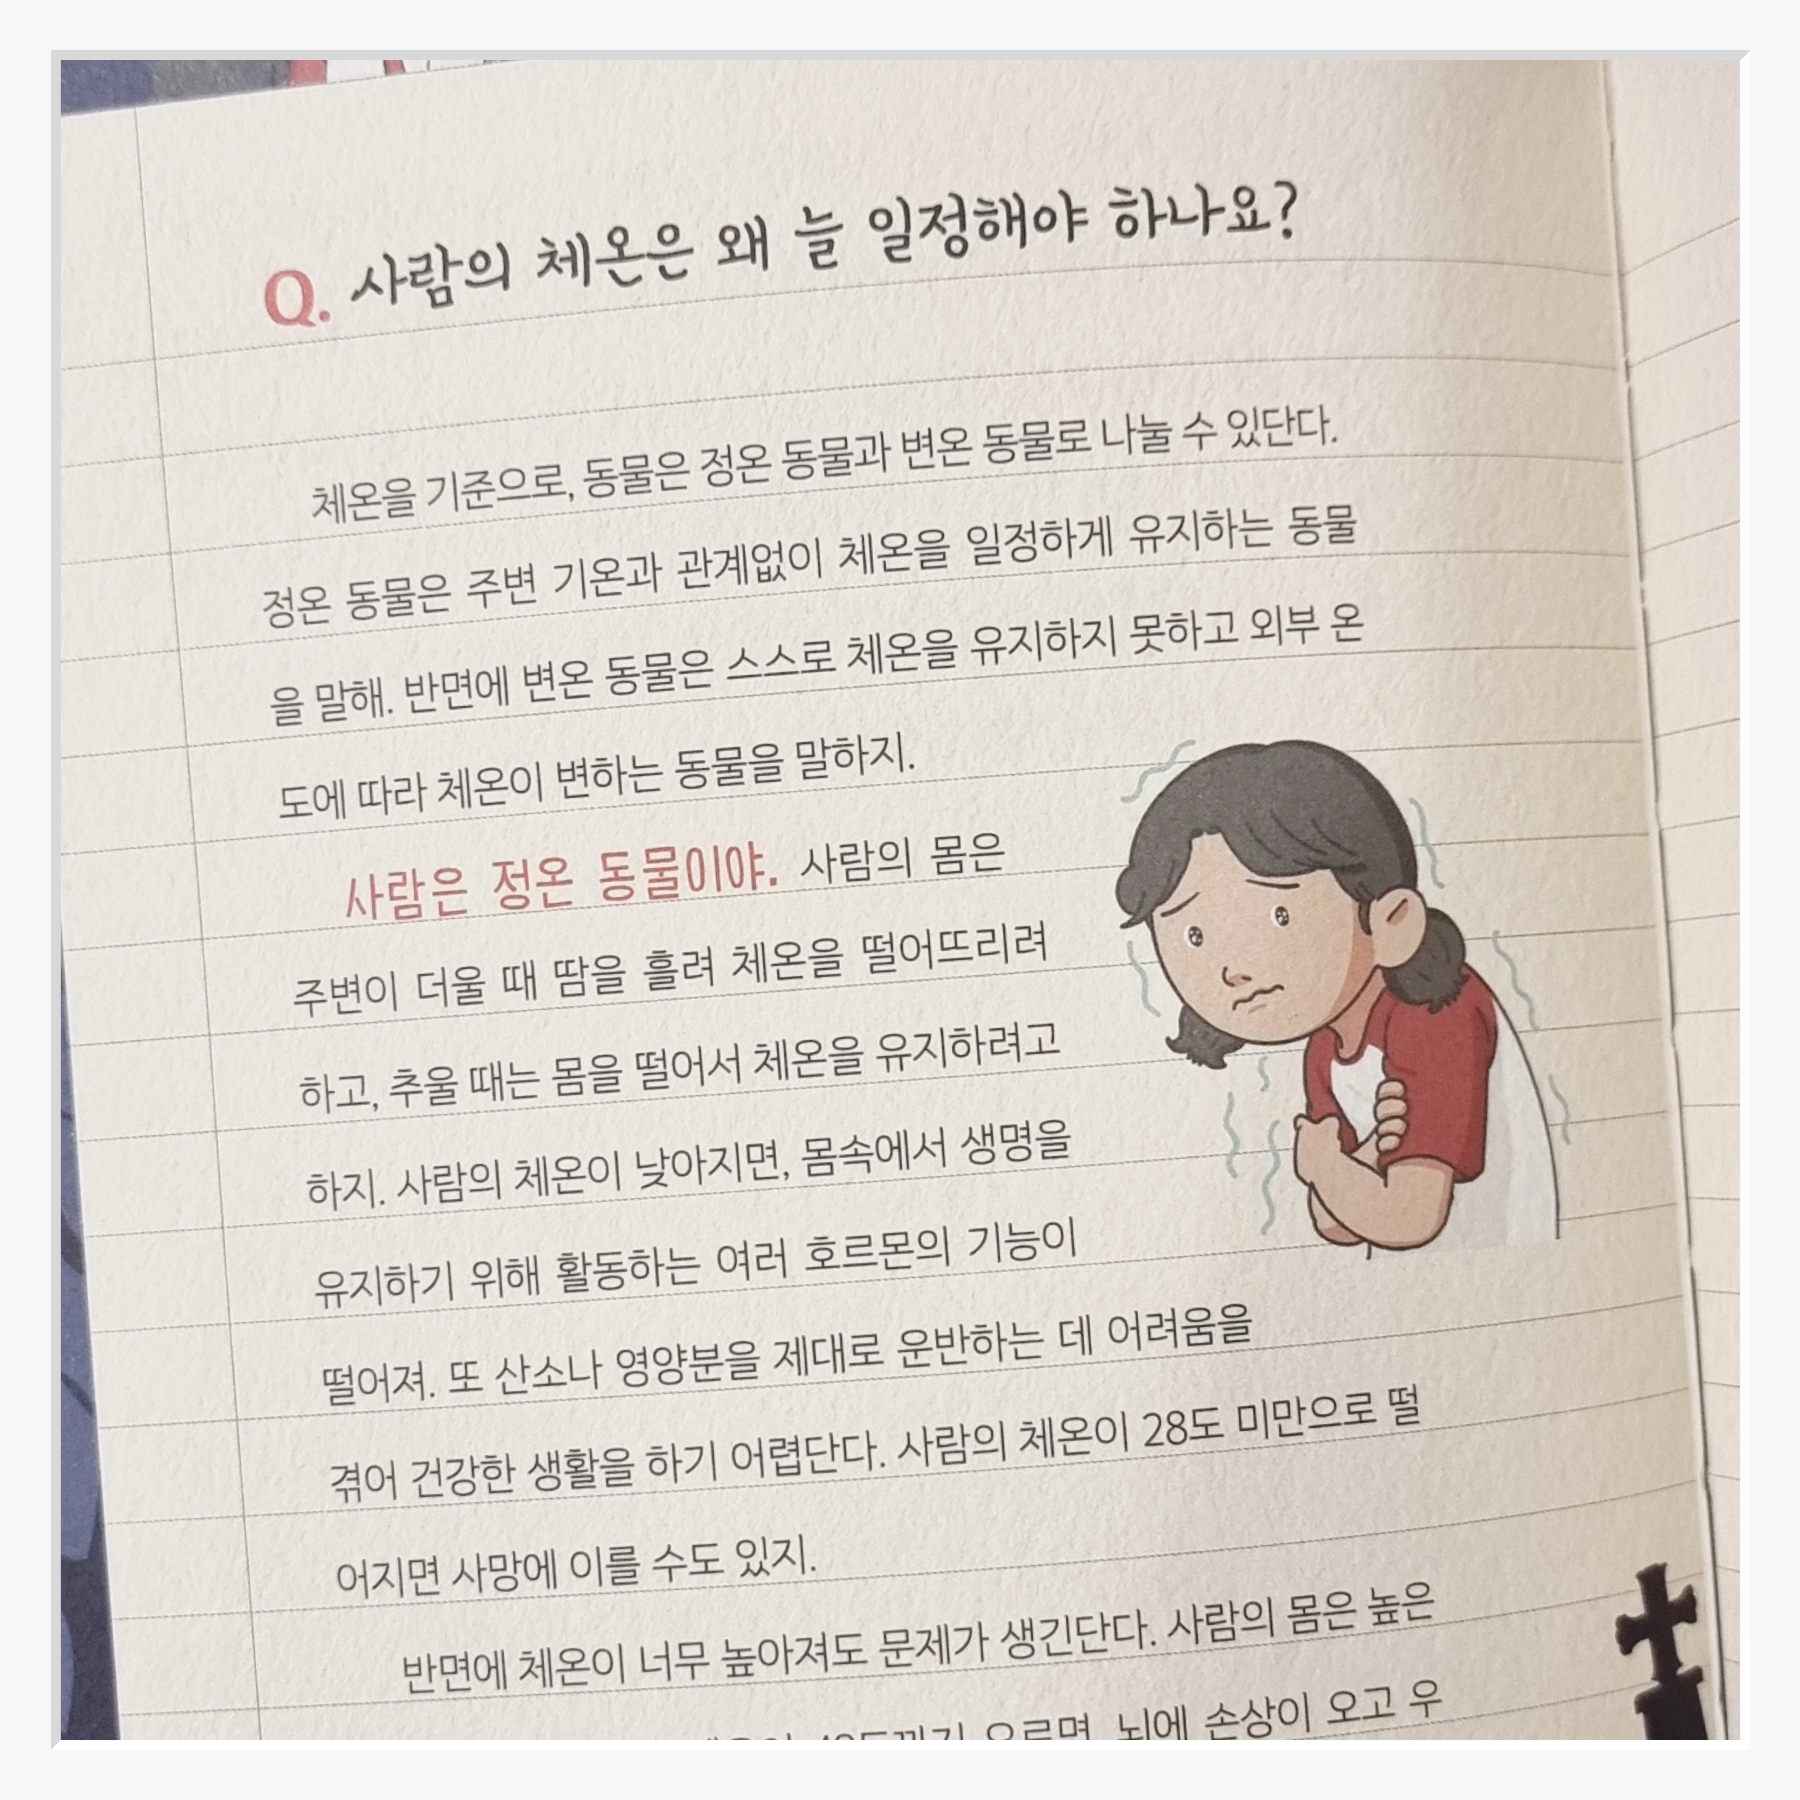 Q. 사람의 체온은 왜 늘 일정해야 하나요?
체온을 기준으로, 동물은 정온 동물과 변온 동물로 나눌 수 있단다.
정온 동물은 주변 기온과 관계없이 체온을 일정하게 유지하는 동물
을 말해. 반면에 변온 동물은 스스로 체온을 유지하지 못하고 외부 온
도에 따라 체온이 변하는 동물을 말하지.
사람은 정온 동물이야. 사람의 몸은
주변이 더울 때 땀을 흘려 체온을 떨어뜨리려
하고, 추울 때는 몸을 떨어서 체온을 유지하려고
하지. 사람의 체온이 낮아지면, 몸속에서 생명을
유지하기 위해 활동하는 여러 호르몬의 기능이
떨어져. 또 산소나 영양분을 제대로 운반하는 데 어려움을
겪어 건강한 생활을 하기 어렵단다. 사람의 체온이 28도 미만으로 떨
어지면 사망에 이를 수도 있지.
반면에 체온이 너무 높아져도 문제가 생긴단다. 사람의 몸은 높은
오르면, 뇌에 손상이 오고 우